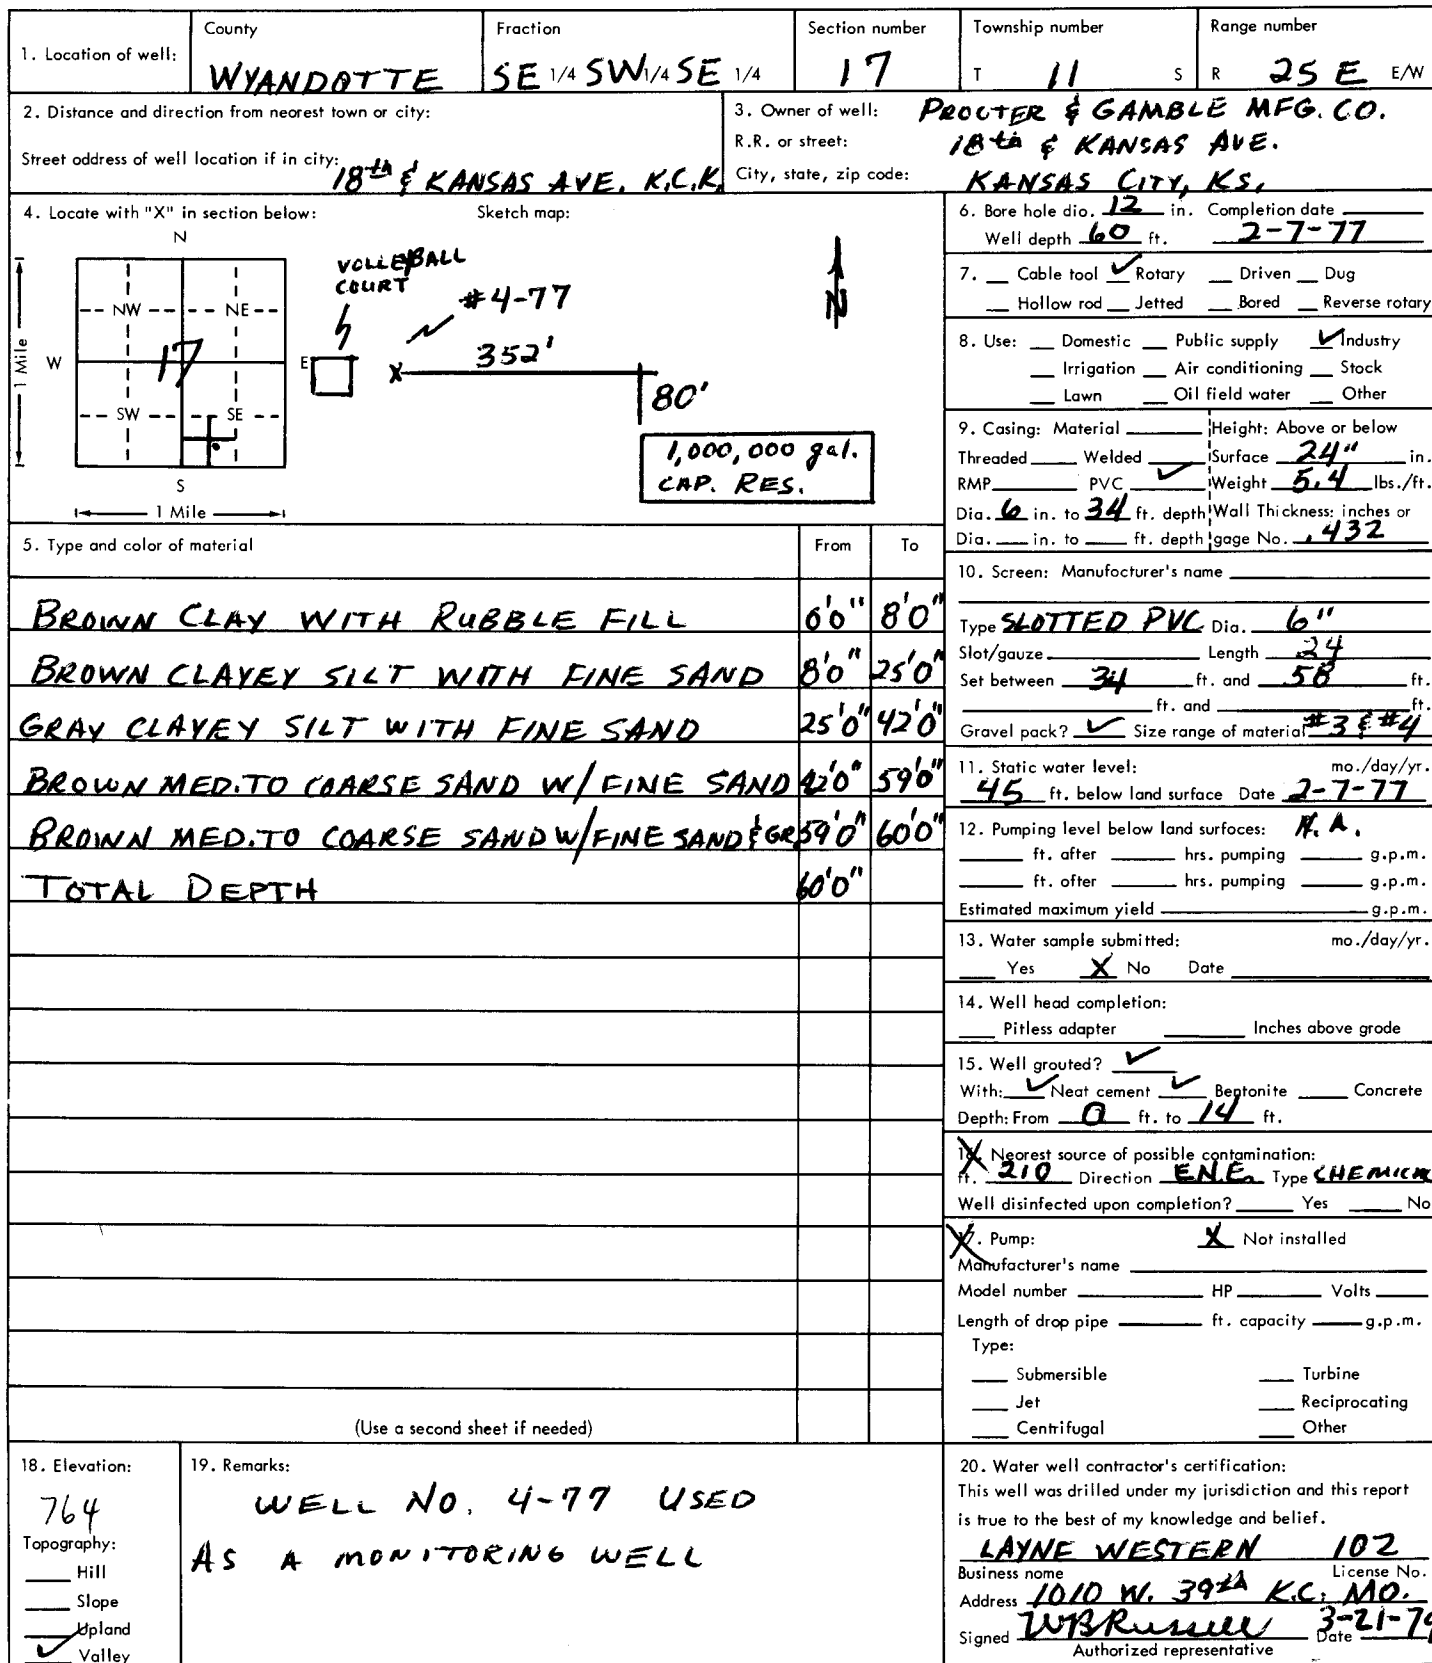 1. Location of well:
County
WYANDOTTE
Fraction
SE 1/4 SW 1/4 SE 1/4
Section number
17
Township number
T 11 S
Range number
R 25 E E/W
2. Distance and direction from nearest town or city:
Street address of well location if in city: 18th & KANSAS AVE. K.C.K.
3. Owner of well: PROCTER & GAMBLE MFG. CO.
R.R. or street: 18th & KANSAS AVE.
City, state, zip code: KANSAS CITY, KS.
4. Locate with "X" in section below:
Sketch map:
N
NW NE
W 17 E
SW SE
S
1 Mile
1 Mile
VOLLEYBALL
COURT
#4-77
X 352'
80'
N
1,000,000 gal.
CAP. RES.
5. Type and color of material From To
BROWN CLAY WITH RUBBLE FILL 0'0" 8'0"
BROWN CLAYEY SILT WITH FINE SAND 8'0" 25'0"
GRAY CLAYEY SILT WITH FINE SAND 25'0" 42'0"
BROWN MED. TO COARSE SAND W/ FINE SAND 42'0" 59'0"
BROWN MED. TO COARSE SAND W/ FINE SAND & GR 59'0" 60'0"
TOTAL DEPTH 60'0"
(Use a second sheet if needed)
6. Bore hole dia. 12 in. Completion date
Well depth 60 ft. 2-7-77
7. Cable tool ✓ Rotary Driven Dug
Hollow rod Jetted Bored Reverse rotary
8. Use: Domestic Public supply ✓ Industry
Irrigation Air conditioning Stock
Lawn Oil field water Other
9. Casing: Material Height: Above or below
Threaded Welded Surface 24" in.
RMP PVC ✓ Weight 5.4 lbs./ft.
Dia. 6 in. to 34 ft. depth Wall Thickness: inches or
Dia. in. to ft. depth gage No. .432
10. Screen: Manufacturer's name
Type SLOTTED PVC Dia. 6"
Slot/gauze Length 24
Set between 34 ft. and 58 ft.
ft. and ft.
Gravel pack? ✓ Size range of material #3 & #4
11. Static water level: mo./day/yr.
45 ft. below land surface Date 2-7-77
12. Pumping level below land surfaces: N.A.
ft. after hrs. pumping g.p.m.
ft. after hrs. pumping g.p.m.
Estimated maximum yield g.p.m.
13. Water sample submitted: mo./day/yr.
Yes X No Date
14. Well head completion:
Pitless adapter Inches above grade
15. Well grouted? ✓
With: ✓ Neat cement ✓ Bentonite Concrete
Depth: From 0 ft. to 14 ft.
16. Nearest source of possible contamination:
ft. 210 Direction E.N.E. Type CHEMICA
Well disinfected upon completion? Yes No
17. Pump: X Not installed
Manufacturer's name
Model number HP Volts
Length of drop pipe ft. capacity g.p.m.
Type:
Submersible Turbine
Jet Reciprocating
Centrifugal Other
18. Elevation:
764
Topography:
Hill
Slope
Upland
✓ Valley
19. Remarks:
WELL NO. 4-77 USED
AS A MONITORING WELL
20. Water well contractor's certification:
This well was drilled under my jurisdiction and this report
is true to the best of my knowledge and belief.
LAYNE WESTERN 102
Business name License No.
Address 1010 W. 39th K.C. MO.
Signed WBRussell Date 3-21-79
Authorized representative